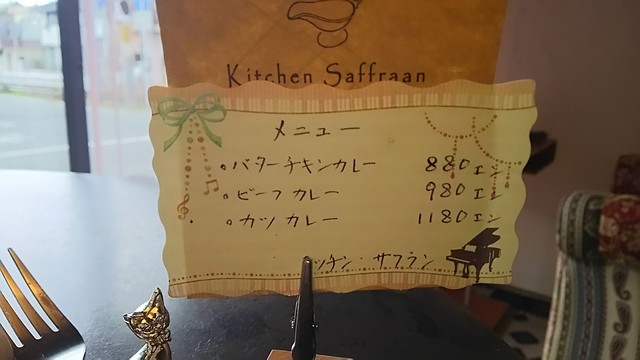 Kitchen Saffraan
メニュー
○バターチキンカレー 880エン
○ビーフカレー 980エン
○カツカレー 1180エン
ッチン・サフラン